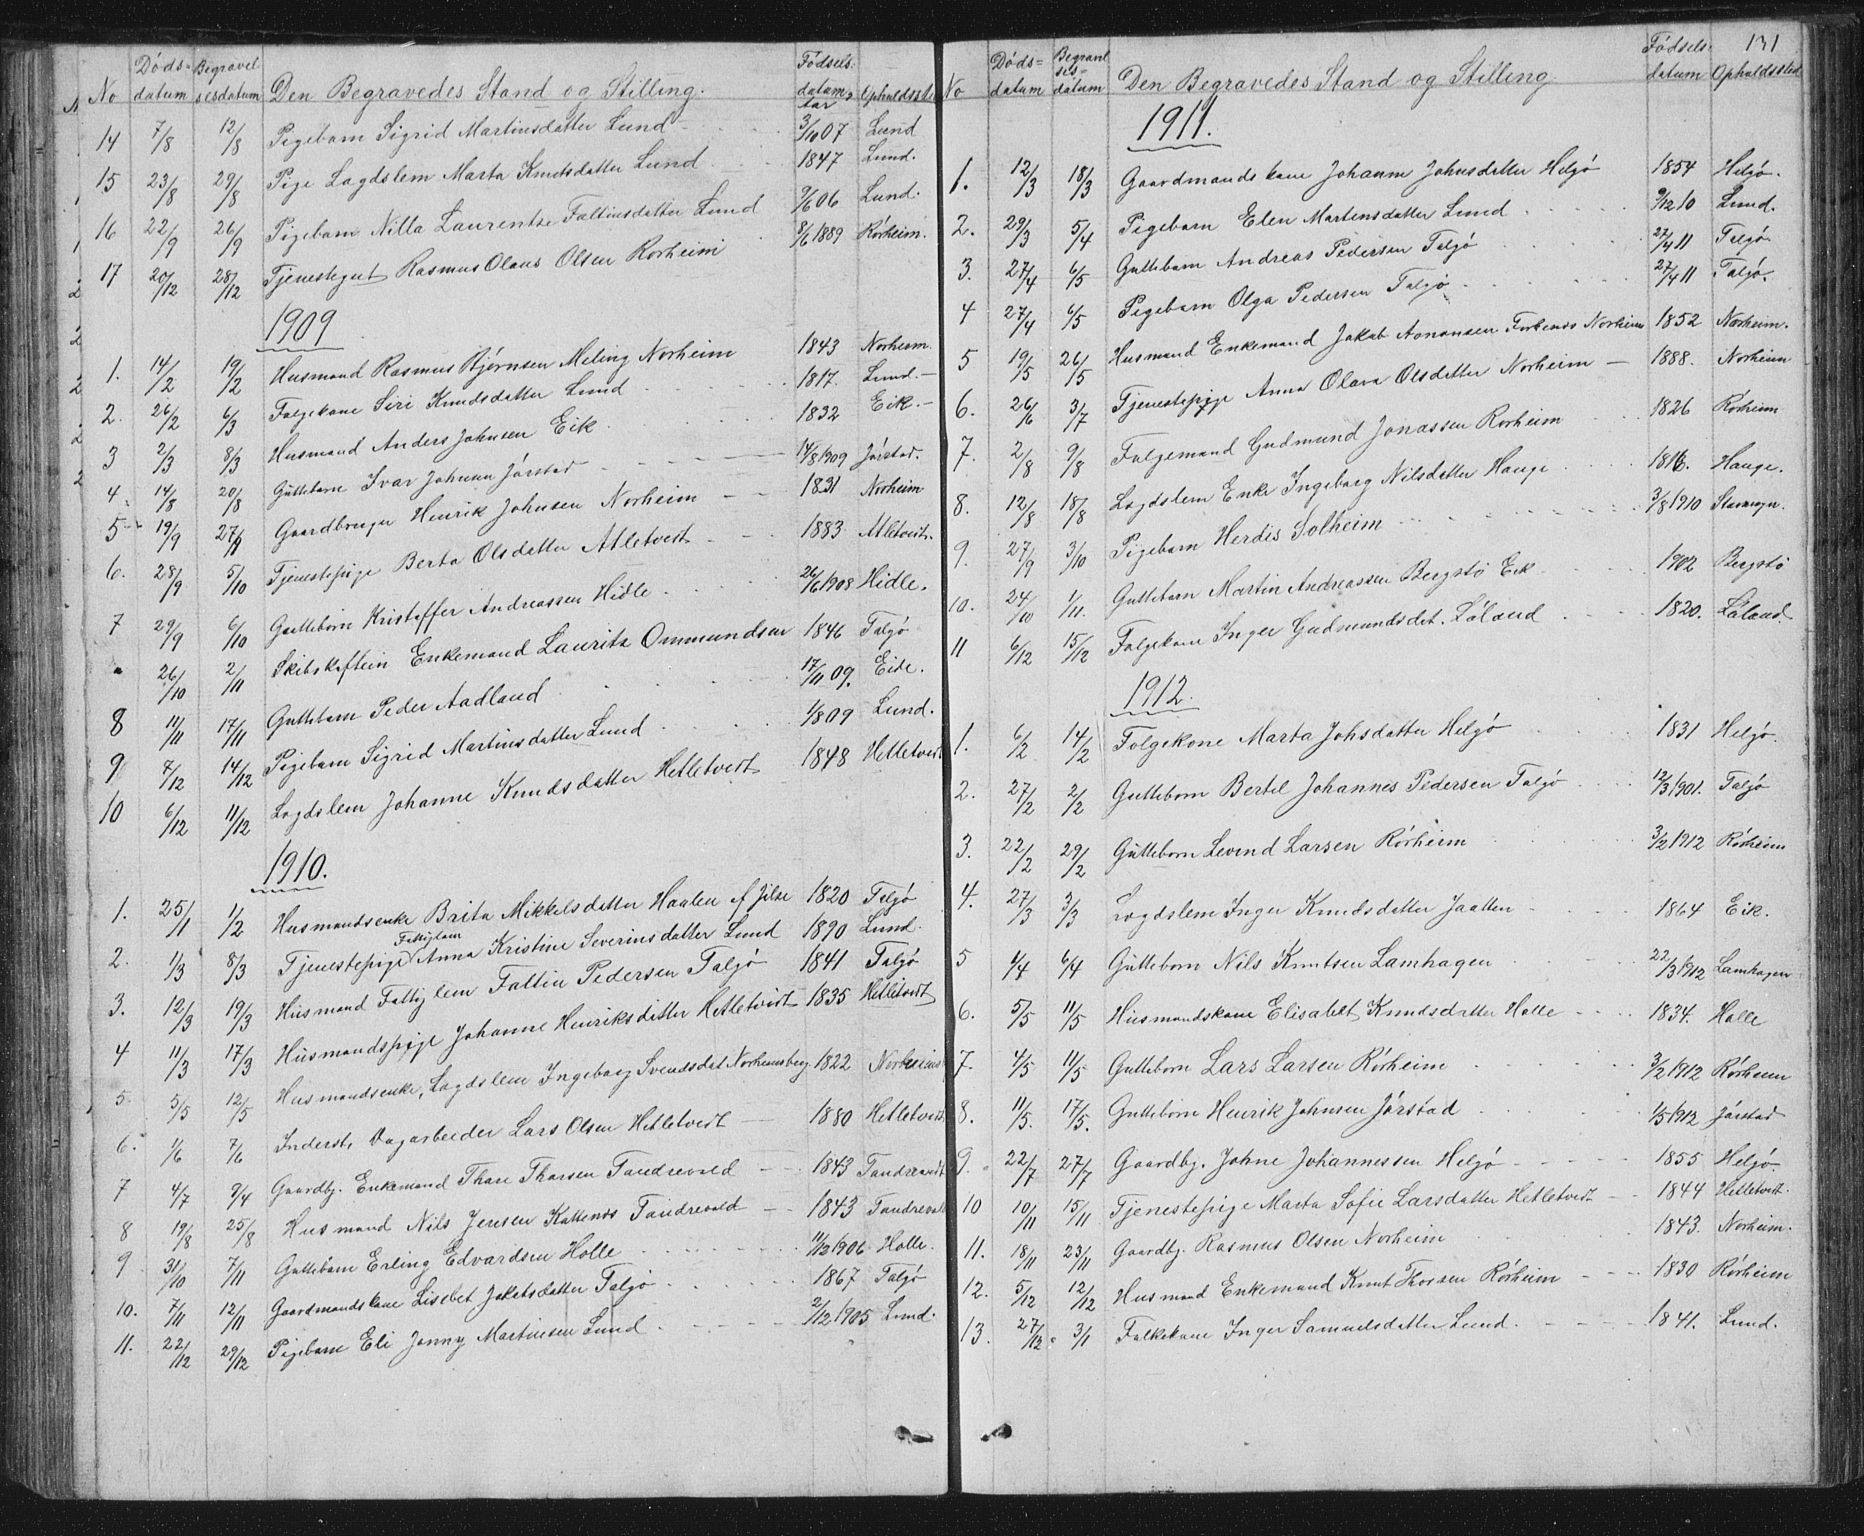 No Døds-datum Begravelsesdatum Den Begravedes Stand og Stilling. Fødselsdatum, aar Opholdsst.
14 7/8 12/8 Pigebarn Sigrid Martinsdatter Lund 3/10 07 Lund
15 23/8 29/8 Pige Lagdslem Marta Knutsdatter Lund 1847 Lund.
16 22/9 26/9 Pigebarn Nilla Laurentse Faltinsdatter Lund 7/6 06 Lund.
17 20/12 28/12 Tjenestegut Rasmus Olaus Olsen Rorheim 8/6 1889 Rorheim.
1909
1. 14/2 19/2 Husmand Rasmus Bjørnsen Meling Norheim 1843 Norheim.
2. 26/2 6/3 Folgekone Siri Knudsdatter Lund 1817. Lund.
3 2/3 8/3 Husmand Anders Johnsen Eik 1832 Eik.
4. 14/8 20/8 Guttebarn Ivar Johnsen Jørstad 14/8 1909 Jørstad.
5 19/9 27/9 Gaardbruger Henrik Johnsen Norheim 1831 Norheim
6. 28/9 5/10 Tjenestepige Berta Olsdatter Atletvedt 1883 Atletveit.
7 29/9 6/10 Guttebørn Kristoffer Andreassen Hidle 26/6 1908 Hidle.
" 26/10 2/11 Skibskaftein Enkemand Lauritz Ommundsen 1846 Talgø
8 11/11 17/11 Guttebarn Peder Aadland 17/11 09. Eide.
9 7/12 14/12 Pigebarn Sigrid Martinsdatter Lund 1/8 09 Lund.
10 6/12 11/12 Lagdslem Johanne Knudsdatter Hetletvedt 1848 Hetletvedt
1910.
1. 25/1 1/2 Husmandsenke Brita Mikkelsdatter Haalen af Jelse 1820 Talgø
2. 1/3 8/3 Tjenestepige Fattiglem Anna Kristine Severinsdatter Lund 1890 Lund.
3. 12/3 19/3 Husmand Fattiglem Faltin Pedersen Talgø 1841 Talgø
4 11/3 17/3 Husmandspige Johanne Henriksdatter Hetletvedt 1835 Hetletvedt
5 5/5 12/5 Husmandsenke, Lagdslem Ingeborg Svendsdat Norheimsberg. 1822 Norheims
6. 1/6 7/6 Inderst, Dagarbeider Lars Olsen Hetletvedt 1880 Hetletvedt
7 4/7 9/4 Gaardbg. Enkemand Thore Thorsen Tandrevold 1843 Tandrevold
8 19/8 25/8 Husmand Nils Jensen Kattenes Tandrevold 1843 Tandrevol
9 31/10 7/11 Guttebarn Erling Edvardsen Holle 11/12 1906 Holle.
10. 7/11 12/11 Gaardmandskone Lisebet Jakobsdatter Talgø 1867 Talgø
11. 22/12 29/12 Pigebarn Eli Jonny Martinsen Lund 2/12 1905 Lund.
131
No Døds-datum Begravelses-datum Den Begravedes Stand og Stilling. Fødsels-datum Opholdssted
1911.
1. 12/3 18/3 Gaardmandskone Johanne Johnsdatter Helgø 1854 Helgø.
2. 29/3 5/4 Pigebarn Elen Martensdatter Lund 9/12 10 Lund.
3. 27/4 6/5 Guttebarn Andreas Pedersen Talgø 27/4 11 Talgø
4 27/4 6/5 Pigebarn Olga Pedersen Talgø 27/4 11 Talgø.
5 19/5 26/5 Husmand Enkemand Jakob Aanansen Norheim 1852 Norheim.
6. 26/6 3/7 Tjenestepige Anna Olava Olsdatter Norheim 1888. Norheim
7. 2/8 9/8 Folgemand Gudmund Jonassen Rorheim 1826 Rorheim
8. 12/8 18/8 Lagdslem Enke Ingeborg Nilsdatter Hauge 1816. Hauge.
9. 27/9 3/10 Pigebarn Herdis Solheim 3/8 1910 Stavanger.
10. 24/10 1/11. Guttebarn Martin Andreassen Bergstø Eik 1902 Bergstø
11 6/12 15/12 Folgekone Inger Gudmundsdat. Løland 1820. Løland
1912.
1. 6/2 14/2 Folgekone Marta Johsdatter Helgø 1831 Helgø.
2. 27/2 2/2 Guttebørn Bertel Johannes Pedersen Talgø 12/3 1901. Talgø
3. 22/2 29/2 Guttebørn Levend Larsen Rorheim 3/2 1912 Rorheim
4. 27/3 3/3 Lagdslem Inger Knudsdatter Jaatten 1864 Eik.
5 1/4 6/4 Guttebørn Nils Knutsen Lamhagen 22/3 1912 Lamhagen
6. 5/5 11/5 Husmandskone Elisabet Knudsdatter Holle 1834. Holle
7. 4/5 11/5 Guttebørn Lars Larsen Rorheim 3/2 1912 Rorheim
8. 11/5. 17/5. Guttebørn Henrik Johnsen Jørstad 1/5 1912 Jørstad
9. 22/7 27/7 Gaardbg. Johne Johannessen Helgø 1855 Helgø
10 10/11 15/11 Tjenestepige Marta Sofie Larsdatter Hetletvedt 1844 Hetletvedt.
11. 18/11 23/11 Gaardbg. Rasmus Olsen Norheim 1843. Norheim.
12. 5/12 12/12 Husmand Enkemand Knut Thorsen Rorheim 1830 Rorheim
13. 27/12 3/1 Folkekone Inger Samuelsdatter Lund. 1841. Lund.